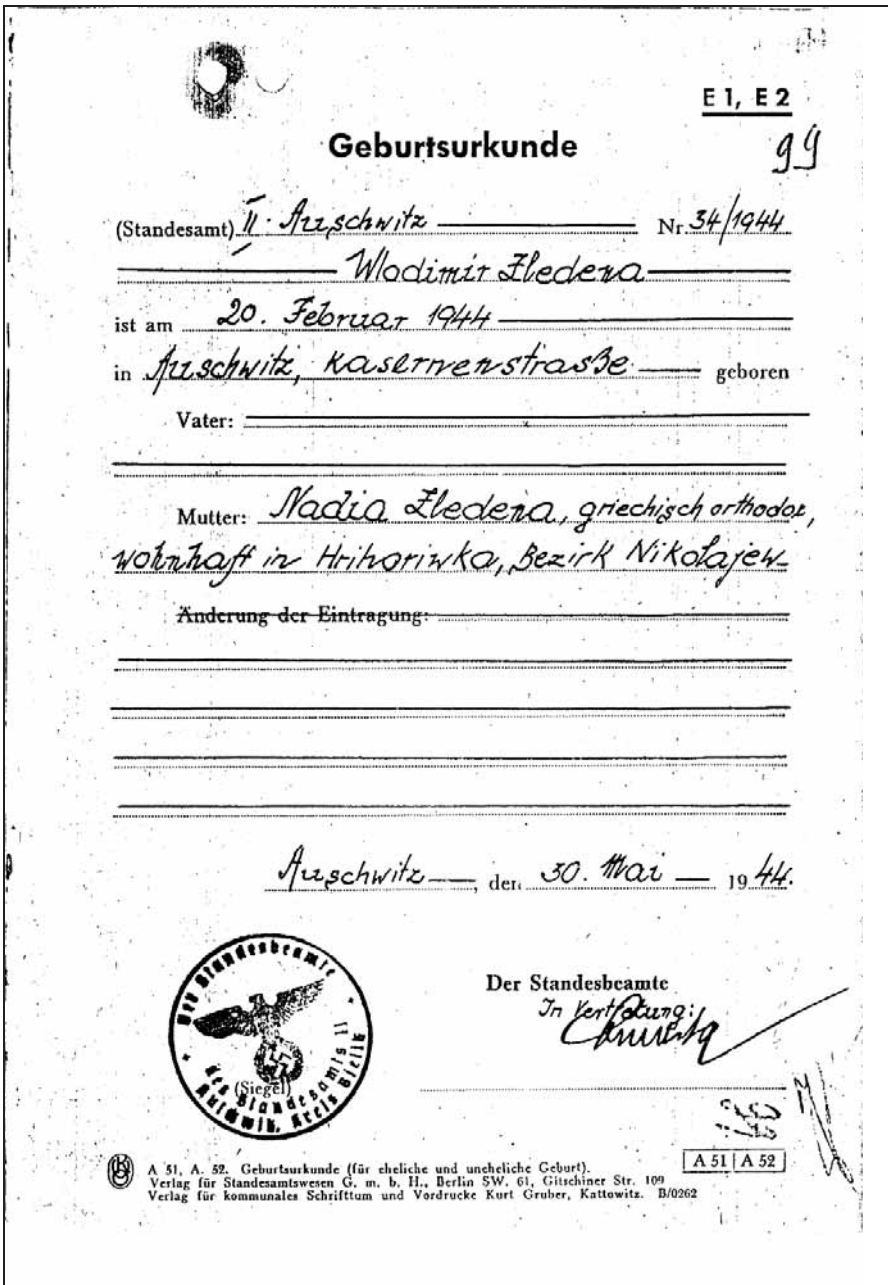 E 1, E 2
Geburtsurkunde
99
(Standesamt) II. Auschwitz Nr. 34/1944
Wladimir Zledena
ist am 20. Februar 1944
in Auschwitz, Kasernenstraße geboren
Vater:
Mutter: Nadia Zledena, griechisch orthodox,
wohnhaft in Hrihoriwka, Bezirk Nikolajew
Änderung der Eintragung:
Auschwitz, den 30. Mai 1944.
Der Standesbeamte
In Vertretung:
Der Standesbeamte
des Standesamts II
Auschwitz, Kreis Bielitz
(Siegel)
A 51 A 52
A 51, A. 52. Geburtsurkunde (für eheliche und uneheliche Geburt).
Verlag für Standesamtswesen G. m. b. H., Berlin SW. 61, Gitschiner Str. 109
Verlag für kommunales Schrifttum und Vordrucke Kurt Gruber, Kattowitz. B/0262